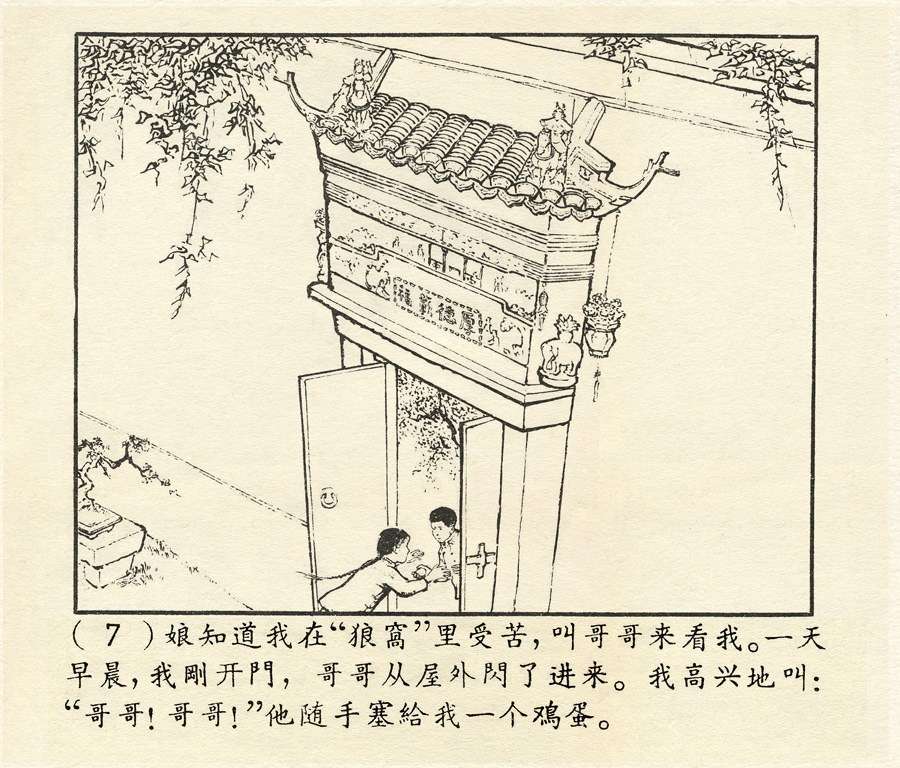 厚德載福
(7)娘知道我在“狼窩”里受苦,叫哥哥来看我。一天
早晨,我剛开門,哥哥从屋外閃了进来。我高兴地叫:
“哥哥!哥哥!”他随手塞給我一个鸡蛋。